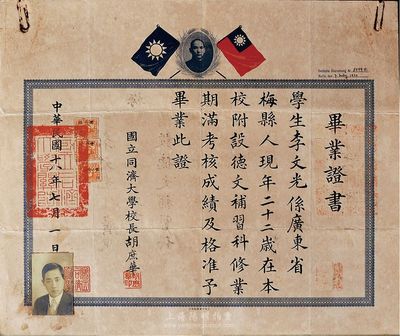 畢業證書
學生李文光係廣東省
梅縣人現年二十二歲在本
校附設德文補習科修業
期滿考核成績及格准予
畢業此證
國立同濟大學校長胡庶華
中華民國十八年七月一日